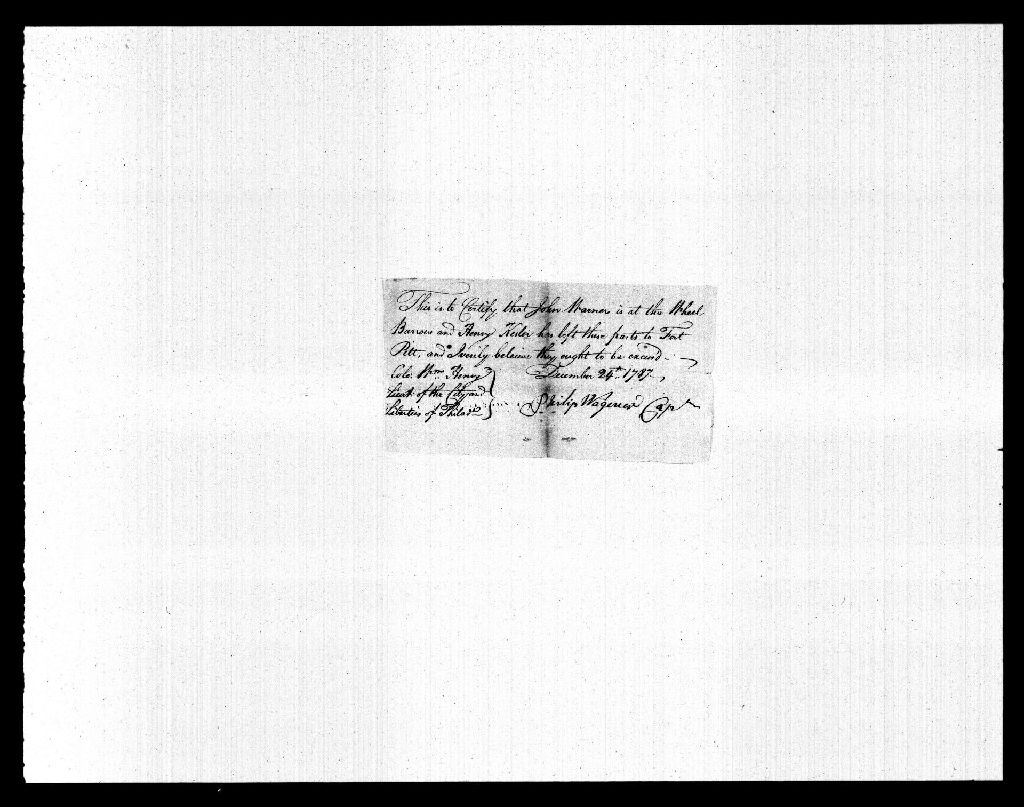 This is to Certify that John Warner is at the Wheel
Barrow and Henry Keiler has left these parts to Fort
Pitt, and I verily believe they ought to be excused.
Colo. Wm. Henry
December 24th. 1787.
Lieut. of the City and
Liberties of Philada.
Philip Wagener Capt